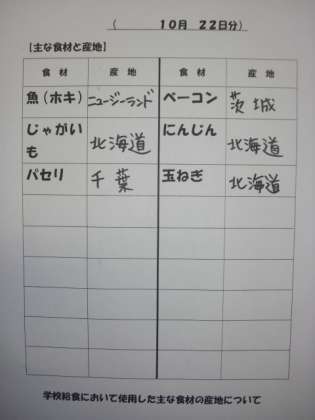 (10月 22日分)
【主な食材と産地】
食材 産地 食材 産地
魚(ホキ) ニュージーランド ベーコン 茨城
じゃがいも 北海道 にんじん 北海道
パセリ 千葉 玉ねぎ 北海道
学校給食において使用した主な食材の産地について